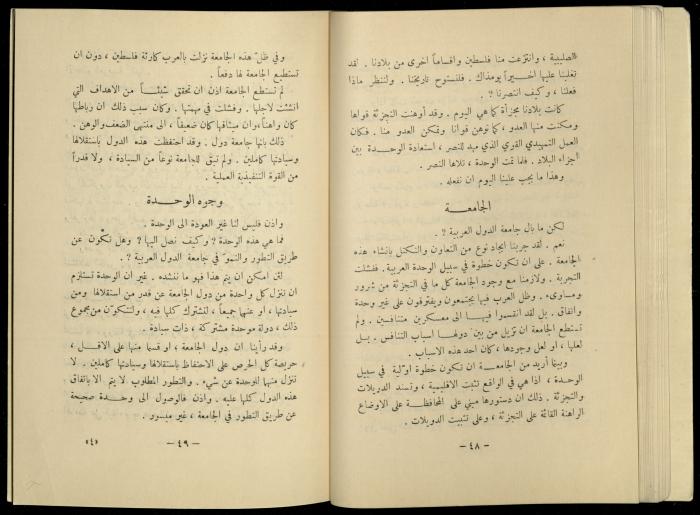 الصليبية ، وانتزعت منا فلسطين واقساماً اخرى من بلادنا . لقد
تغلبنا عليها اخيراً يومذاك . فلنستوح تاريخنا . ولننظر ماذا
فعلنا ، وكيف انتصرنا ? .
كانت بلادنا مجزأة كما هي اليوم . وقد أوهنت التجزئة قوانا
ومكنت منها العدو ، كما توهن قوانا وتمكن العدو منا . فكان
العمل التمهيدي القوي الذي مهد للنصر ، استعادة الوحدة بين
اجزاء البلاد . فلما تمت الوحدة ، تلاها النصر .
وهذا ما يجب علينا اليوم ان نفعله .
الجامعة
لكن ما بال جامعة الدول العربية ? .
نعم . لقد جربنا ايجاد نوع من التعاون والتكتل بانشاء هذه
الجامعة . على ان تكون خطوة في سبيل الوحدة العربية . ففشلت
التجربة . ولازمنا مع وجود الجامعة كل ما في التجزئة من شرور
ومساوىء . وظل العرب فيها يجتمعون ويفترقون على غير وحدة
واتفاق . بل لقد انقسموا فيها الى معسكرين متنافسين . ولم
تستطع الجامعة ان تزيل من بين دولها اسباب التنافس . بل
لعلها ، او لعل وجودها ، كان احد هذه الاسباب .
وبينما أريد من الجامعة ان تكون خطوة اولية في سبيل
الوحدة ، اذا هي في الواقع تثبت الاقليمية ، وتسند الدويلات
والتجزئة . ذلك ان دستورها مبني على المحافظة على الاوضاع
الراهنة القائمة على التجزئة ، وعلى تثبيت الدويلات .
- ٤٨ -
وفي ظل هذه الجامعة نزلت بالعرب كارثة فلسطين ، دون ان
تستطيع الجامعة لها دفعاً .
لم تستطع الجامعة اذن ان تحقق شيئاً من الاهداف التي
انشئت لاجلها . وفشلت في مهمتها . وكان سبب ذلك ان رباطها
كان واهناً ، وان ميثاقها كان ضعيفاً ، الى منتهى الضعف والوهن .
ذلك بانها جامعة دول . وقد احتفظت هذه الدول باستقلالها
وسيادتها كاملين . ولم تبق للجامعة نوعاً من السيادة ، ولا قدراً
من القوة التنفيذية العملية .
وجوه الوحدة
واذن فليس لنا غير العودة الى الوحدة .
فما هي هذه الوحدة ? وكيف نصل اليها ? وهل تكون عن
طريق التطور والنمو في جامعة الدول العربية ? .
لئن امكن ان يتم هذا فهو ما ننشده . غير ان الوحدة تستلزم
ان تنزل كل واحدة من دول الجامعة عن قدر من استقلالها ومن
سيادتها ، او عنها جميعاً ، لتشترك كلها فيه ، ولتتكون من مجموع
ذلك ، دولة موحدة مشتركة ، ذات سيادة .
وقد رأينا ان دول الجامعة ، او قسما منها على الاقل ،
حريصة كل الحرص على الاحتفاظ باستقلالها وسيادتها كاملين . لا
تنزل منها للوحدة عن شيء . والتطور المطلوب لا يتم الا باتفاق
هذه الدول كلها عليه . واذن فالوصول الى وحدة صحيحة
عن طريق التطور في الجامعة ، غير ميسور .
- ٤٩ -
«٤»